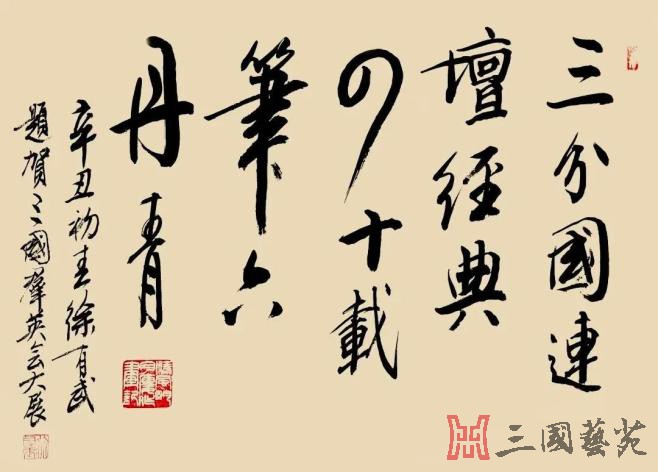 三分國連
壇經典
四十載
筆
丹青
辛丑初春徐有武
題賀三國群英会大展
三國藝苑